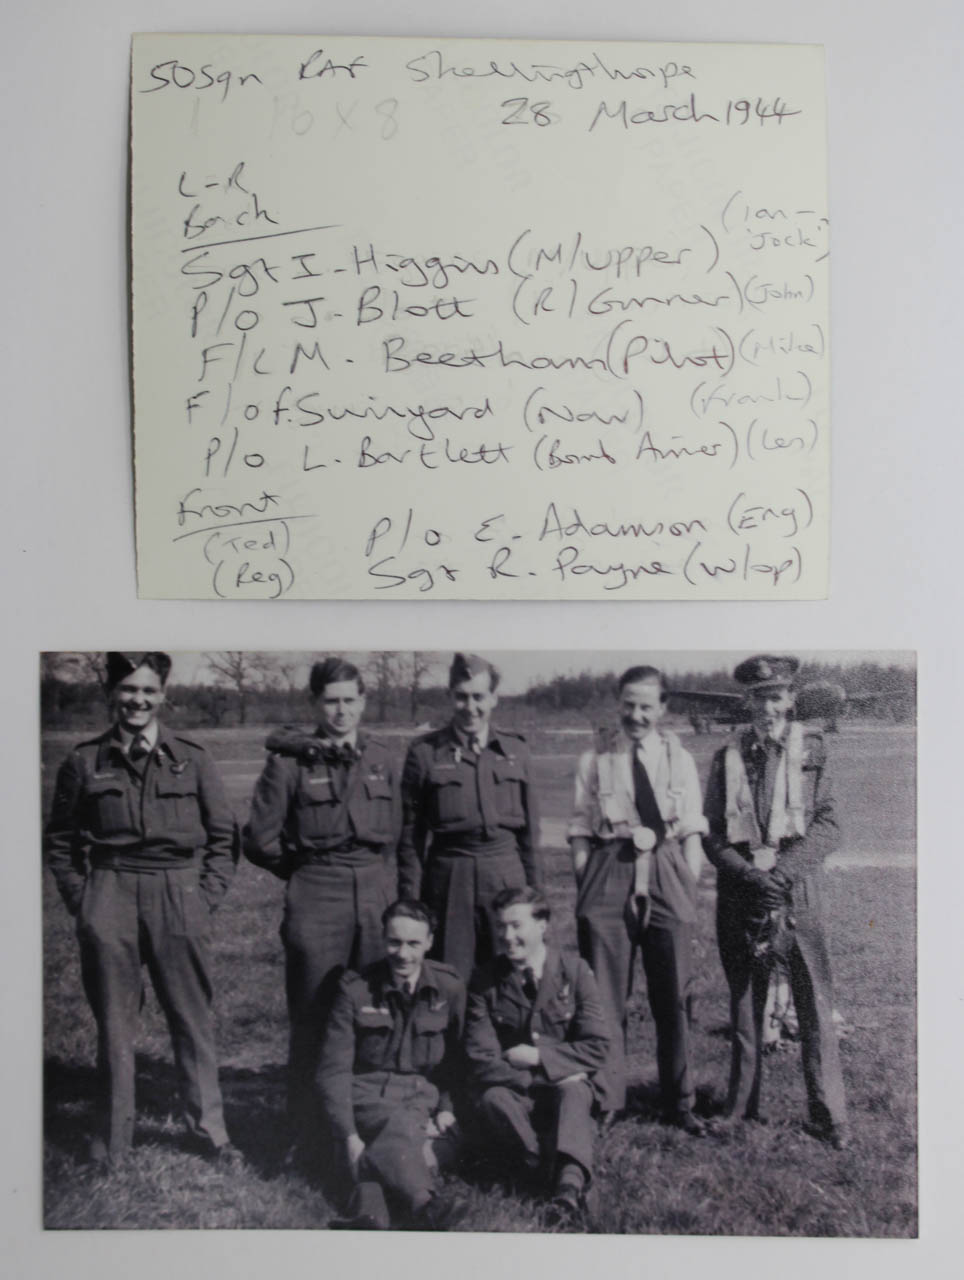 50Sqn RAF Skellingthorpe
1 10 x 8 28 March 1944
L-R
Back
(Ian -
'Jock')
Sgt I. Higgins (M/upper)
P/o J. Blott (R/Gunner) (John)
F/L M. Beetham (Pilot) (Mike)
F/o F. Swinyard (Nav) (Frank)
P/o L. Bartlett (Bomb Aimer) (Les)
Front
(Ted) P/o E. Adamson (Eng)
(Reg) Sgt R. Payne (W/op)